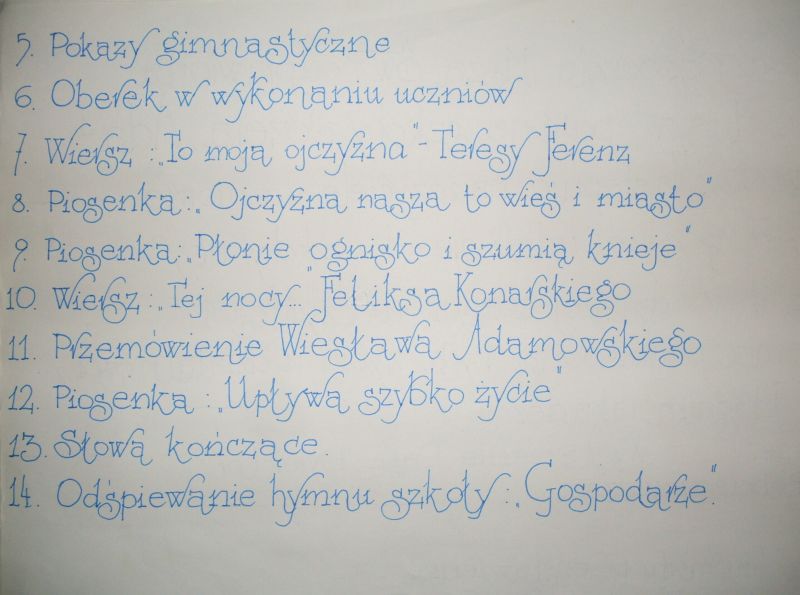 5. Pokazy gimnastyczne
6. Oberek w wykonaniu uczniów
7. Wiersz : „To moja ojczyzna" - Teresy Ferenz
8. Piosenka : „Ojczyzna nasza to wieś i miasto"
9. Piosenka : „Płonie ognisko i szumią knieje"
10. Wiersz : „Tej nocy..." Feliksa Konarskiego
11. Przemówienie Wiesława Adamowskiego
12. Piosenka : „Upływa szybko życie"
13. Słowa kończące.
14. Odśpiewanie hymnu szkoły : „Gospodarze".